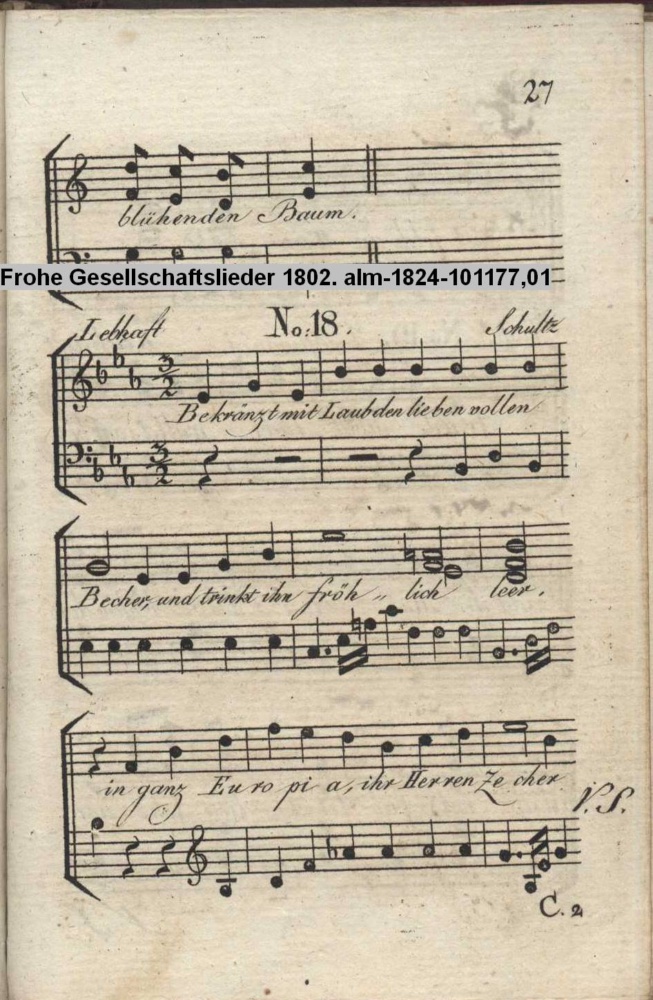 27
blühenden Baum.
Frohe Gesellschaftslieder 1802. alm-1824-101177,01
Lebhaft No: 18. Schultz
3
2
Bekränzt mit Laub den lieben vollen
3
2
Becher, und trinkt ihn fröh „ lich leer.
in ganz Europia, ihr Herren Zecher
V. S.
C. 2